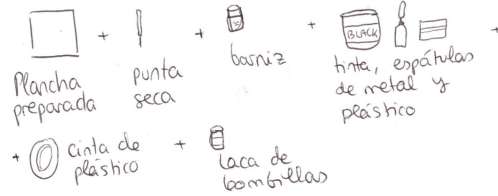 + + + +
BLACK
Plancha preparada
punta seca
barniz
tinta, espátulas de metal y plástico
+ cinta de plástico + laca de bombillas